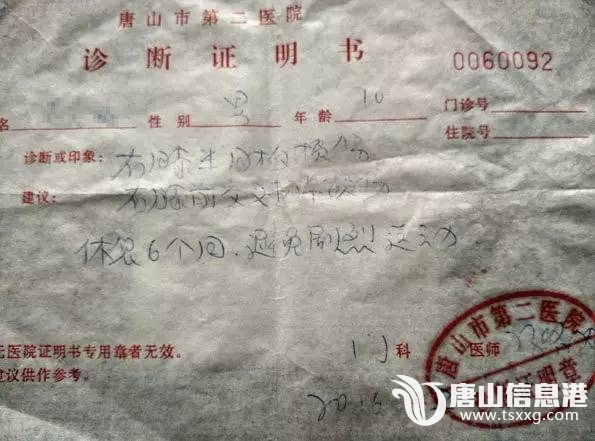 唐山市第二医院
诊断证明书
0060092
名 性别 男 年龄 10 门诊号
住院号
诊断或印象：右膝半月板损伤
建议：右膝前交叉韧带损伤
休息6个月.避免剧烈运动.
无医院证明书专用章者无效。 门科 医师
建议供作参考。
唐山市第二医院
证明章
唐山信息港
www.tsxxg.com